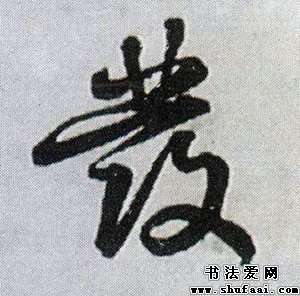 發
书法爱网
www.shufaai.com